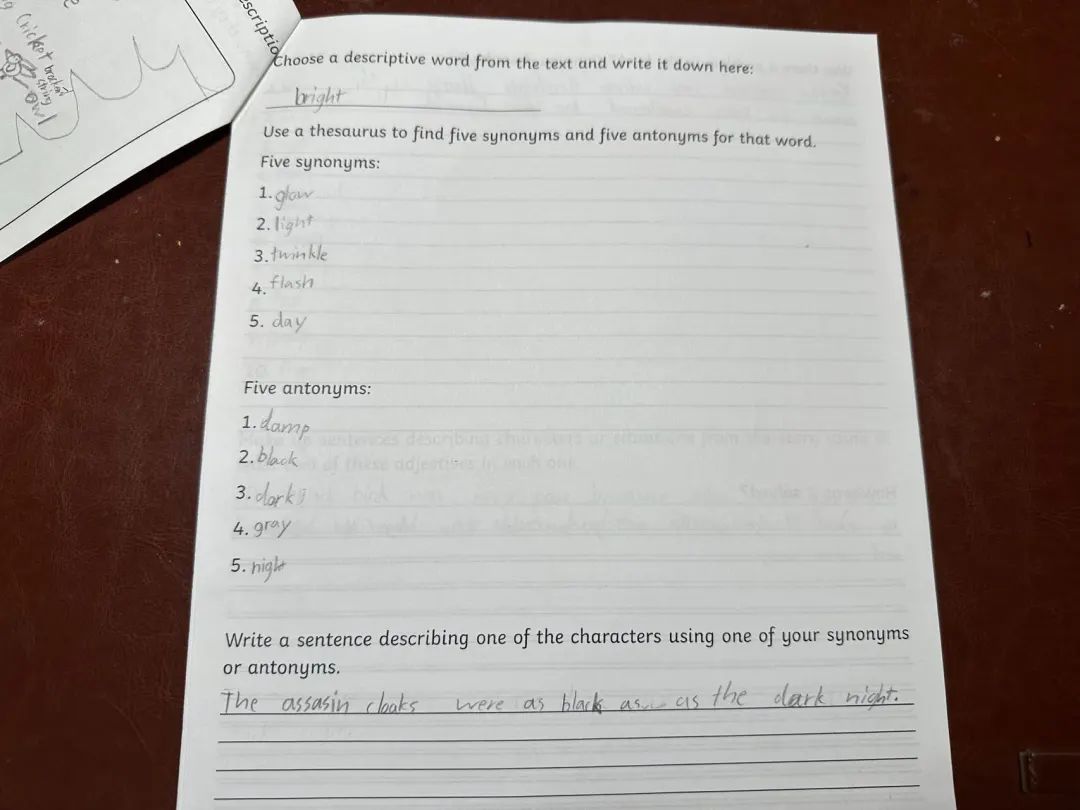 escriptio
Cricket
broken
string
owl
Choose a descriptive word from the text and write it down here:
bright
Use a thesaurus to find five synonyms and five antonyms for that word.
Five synonyms:
1. glow
2. light
3. twinkle
4. flash
5. day
Five antonyms:
1. damp
2. black
3. dark
4. gray
5. night
Write a sentence describing one of the characters using one of your synonyms
or antonyms.
The assasin cloaks were as black as as the dark night.